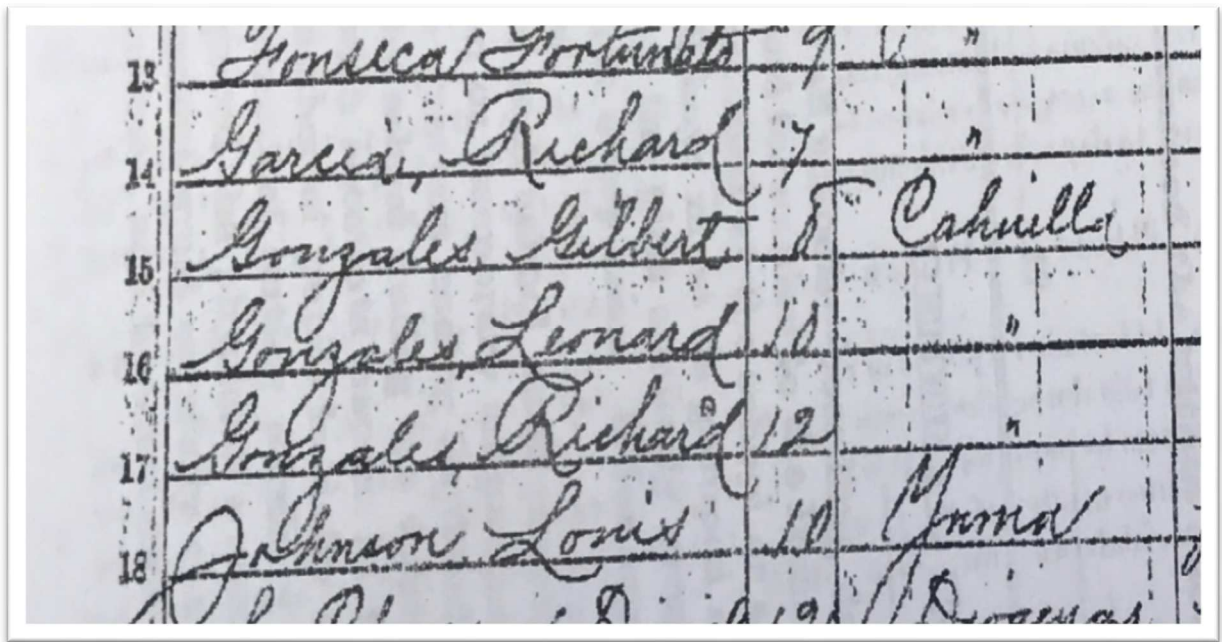 13 Fonseca, Fortunato 9 " "
14 Garcia, Richard 7 "
15 Gonzales, Gilbert 8 Cahuilla
16 Gonzales, Leonard 10 "
17 Gonzales, Richard 12 "
18 Johnson, Louis 10 Yuma